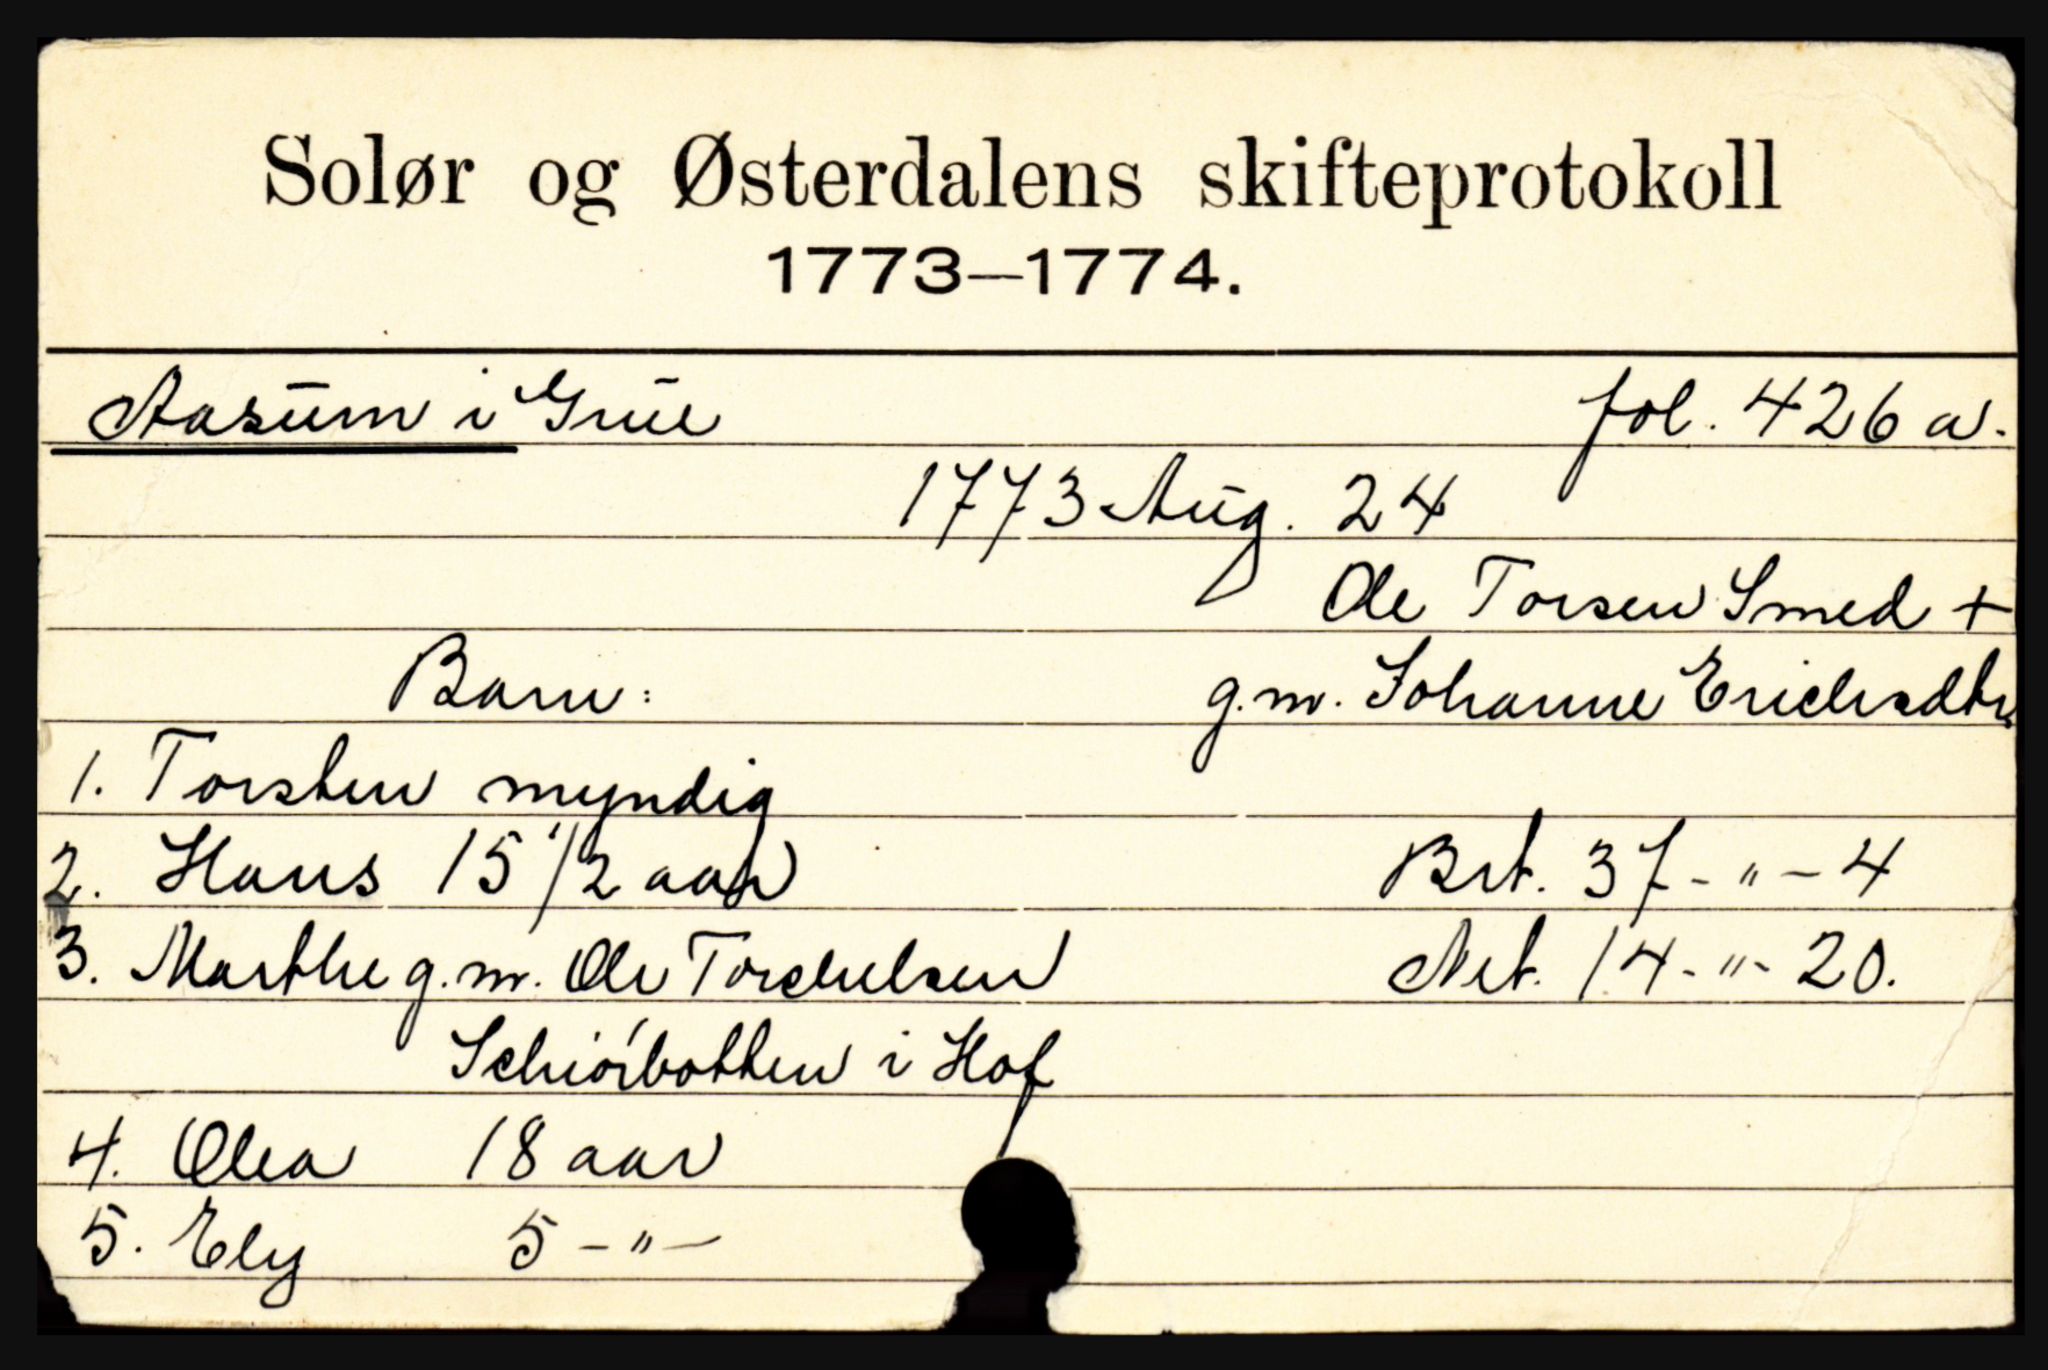 Solør og Østerdalens skifteprotokoll
1773—1774.
Aasum i Grue fol. 426 a.
1773 Aug. 24
Ole Torsen Smed +
Barn: g.m. Johanne Erichsdtr.
1. Torsten myndig
2. Hans 15 1/2 aar Brt. 37-"-4
3. Marthe g.m. Ole Torchelsen Net. 14-"-20.
Schiörbotten i Hof
4. Olea 18 aar
5. Ely 5 -"-